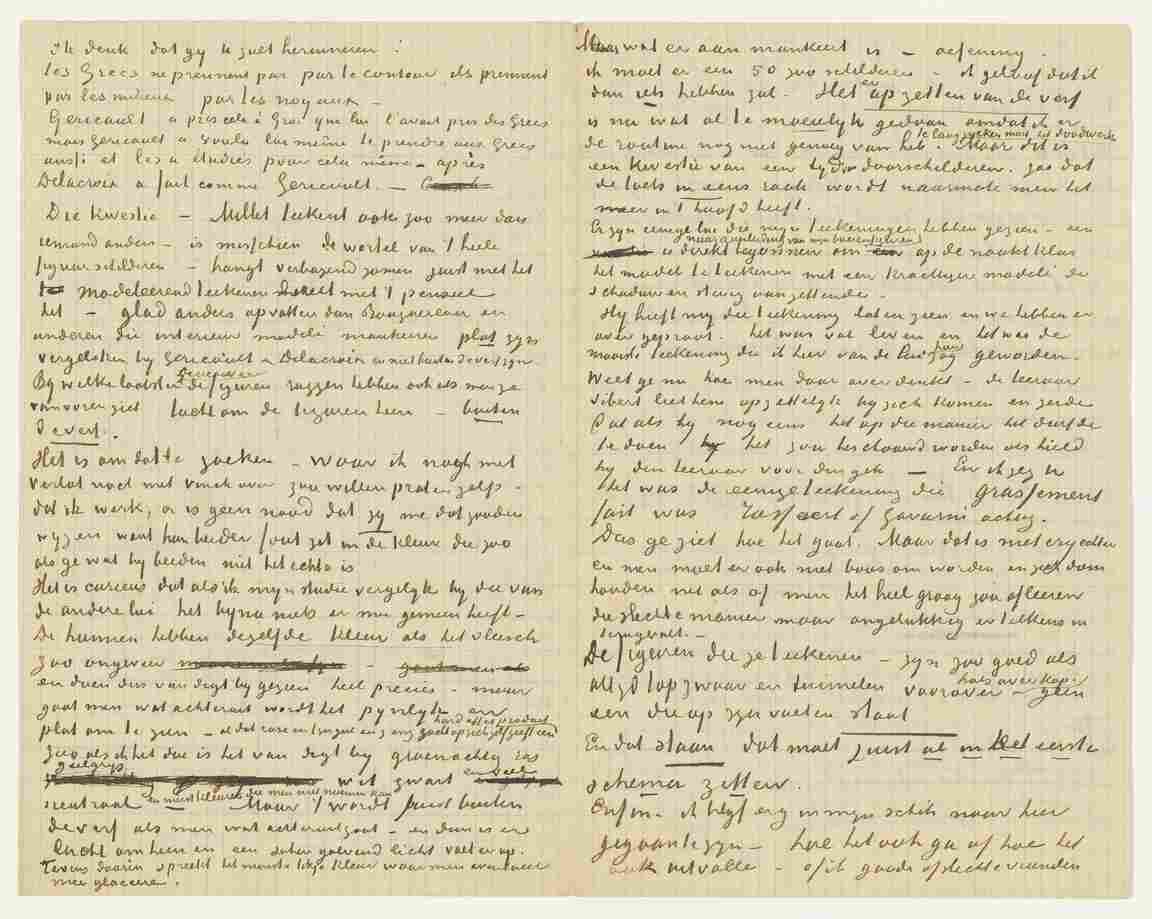 Ik denk dat gij U zult herinneren :
les Grecs ne prennent pas par le contour ils prennent
par les milieux par les noyaux –
Gericault a pris cela à Gros que lui l'avait pris des Grecs
mais Gericault a voulu lui même le prendre aux Grecs
aussi et les a étudiés pour cela même – après
Delacroix a fait comme Gericault. –
Die kwestie – Millet teekent ook zoo meer dan
iemand anders – is misschien de wortel van 't heele
figuurschilderen – hangt verbazend zamen juist met het
modeleerend teekenen direkt met 't penseel
het – glad anders opvatten dan Bouguereau en
anderen die interieur modelé mankeeren plat zijn
vergeleken bij Gericault en Delacroix en niet buiten de verf zijn.
Bij welke laatsten de figuren ruggen hebben ook als men ze
van voren ziet lucht om de figuren heen – buiten
de verf.
Het is om dat te zoeken – waar ik noch met
Verlat noch met Vinck over zou willen praten zelfs –
dat ik werk, er is geen nood dat zij me dat zouden
wijzen want hun beider fout zit in de kleur die zoo
als ge wat bij beiden niet het echte is.
Het is curieus dat als ik mijn studie vergelijk bij die van
de andere lui het bijna niets er mee gemeen heeft –
De hunnen hebben dezelfde kleur als het vleesch
zoo ongeveer –
en doen dus van digt bij gezien heel precies – maar
gaat men wat achteruit wordt het pijnlijk om
plat om te zien – al dat rose en fijngeel enz. enz. zacht op zich zelf geeft een
hard effet produceert
Zoo als ik het doe is het van digt bij groenachtig ros
geelgrijs wit zwart en veel
neutraal en meest kleuren die men niet noemen kan
Maar 't wordt juist buiten
de verf als men wat achteruitgaat – en dan is er
lucht om heen en een zeker golvend licht valt er op.
Tevens daarin spreekt het minste likje kleur waar men eventueel
mee glaceere.
Maar wat er aan mankeert is – oefening.
ik moet er een 50 zoo schilderen – ik geloof dat ik
dan iets hebben zal. Het er opzetten van de verf
is nu wat al te moeielijk gedaan omdat ik er
de routine nog niet genoeg van heb. te lang zoeken moet, het doodwerk
Maar dit is
een kwestie van een tijdje doorschilderen. zoo dat
de toets in eens raak wordt naarmate men het
meer in 't hoofd heeft.
Er zijn eenige lui die mijn teekeningen hebben gezien – een
naar aanleiding van mijn boerenfiguren
is direkt begonnen om op de naaktklas
het model te teekenen met een krachtiger modelé de
schaduwen stevig aanzettende.
Hij heeft mij die teekening laten zien en we hebben er
over gepraat. het was vol leven en het was de
mooiste teekening die ik hier van de lui zag geworden.
Weet ge nu hoe men daar over denkt – de leeraar
Sibert liet hem opzettelijk bij zich komen en zeide
dat als hij nog eens het op die manier het durfde
te doen het zou beschouwd worden als hield
hij den leeraar voor den gek – En ik zeg U
het was de eenige teekening die grassement
fait was Tassaert of Gavarni achtig.
Dus ge ziet hoe het gaat. Maar dat is niet erg echter
en men moet er ook niet boos om worden en zich dom
houden net als of men het heel graag zou afleeren
die slechte manier maar ongelukkig er telkens in
terugvalt. –
De figuren die ze teekenen – zijn zoo goed als
altijd topzwaar en tuimelen voorover hals over kop – geen
een die op zijn voeten staat
En dat staan dat moet juist al in het eerste
schema zitten.
Enfin – ik blijf erg in mijn schik naar hier
gegaan te zijn – hoe het ook ga of hoe het
ook uitvalle – of ik goede of slechte vrienden